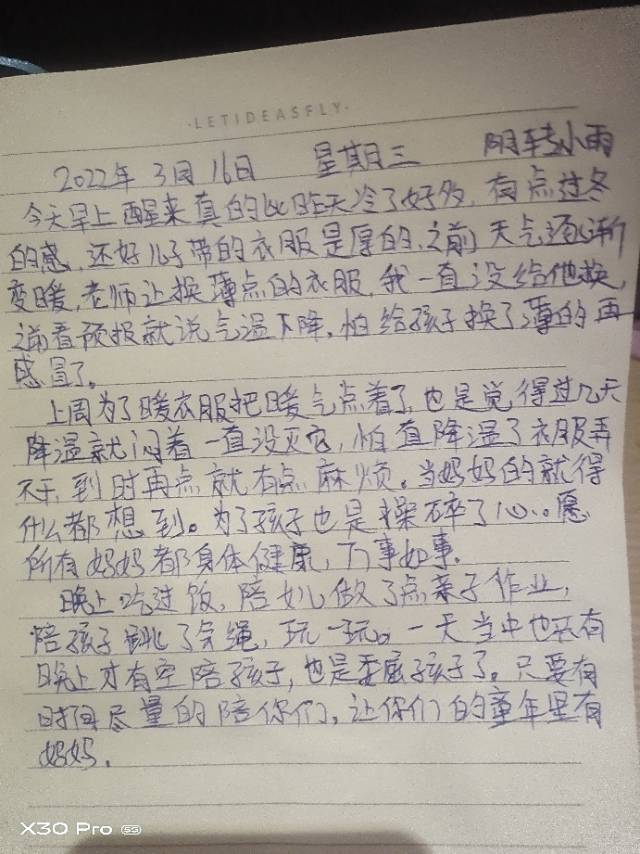 ·LETIDEASFLY·
2022年3月16日 星期三 阴转小雨
今天早上醒来真的比昨天冷了好多,有点过冬
的感,还好儿子带的衣服是厚的,之前天气逐渐
变暖,老师让换薄点的衣服,我一直没给他换,
之前看预报就说气温下降,怕给孩子换了薄的再
感冒了。
上周为了暖衣服把暖气点着了,也是觉得过几天
降温就闷着一直没灭它,怕真降温了衣服弄
不干,到时再点就有点麻烦。当妈妈的就得
什么都想到。为了孩子也是操碎了心...愿
所有妈妈都身体健康,万事如事.
晚上吃过饭,陪女儿做了点亲子作业,
陪孩子跳了会绳,玩一玩。一天当中也只有
晚上才有空陪孩子,也是委屈孩子了。只要有
时间尽量的陪你们,让你们的童年里有
妈妈.
X30 Pro 5G